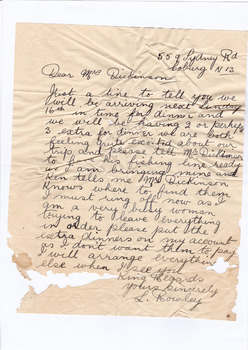 559 Sydney Rd
Coburg N 13
Dear Mrs Dickinson
Just a line to tell you we
will be arriving next Sunday
16th in time for dinner and
we will be having 2 or perhaps
3 extra for dinner we are both
feeling quite excited about our
trip and please tell Mr Dickinson
to have his fishing line ready
as I am bringing mine and
Ken tells me Mr Dickinson
Knows where to find them
I must ring off now as I
am a very busy woman
trying to leave everything
in order please put the
extra dinners on my account
as I don't want them to pay
I will arrange everything
else when I see you
Kind Regards
yours sincerely
L. Rowley